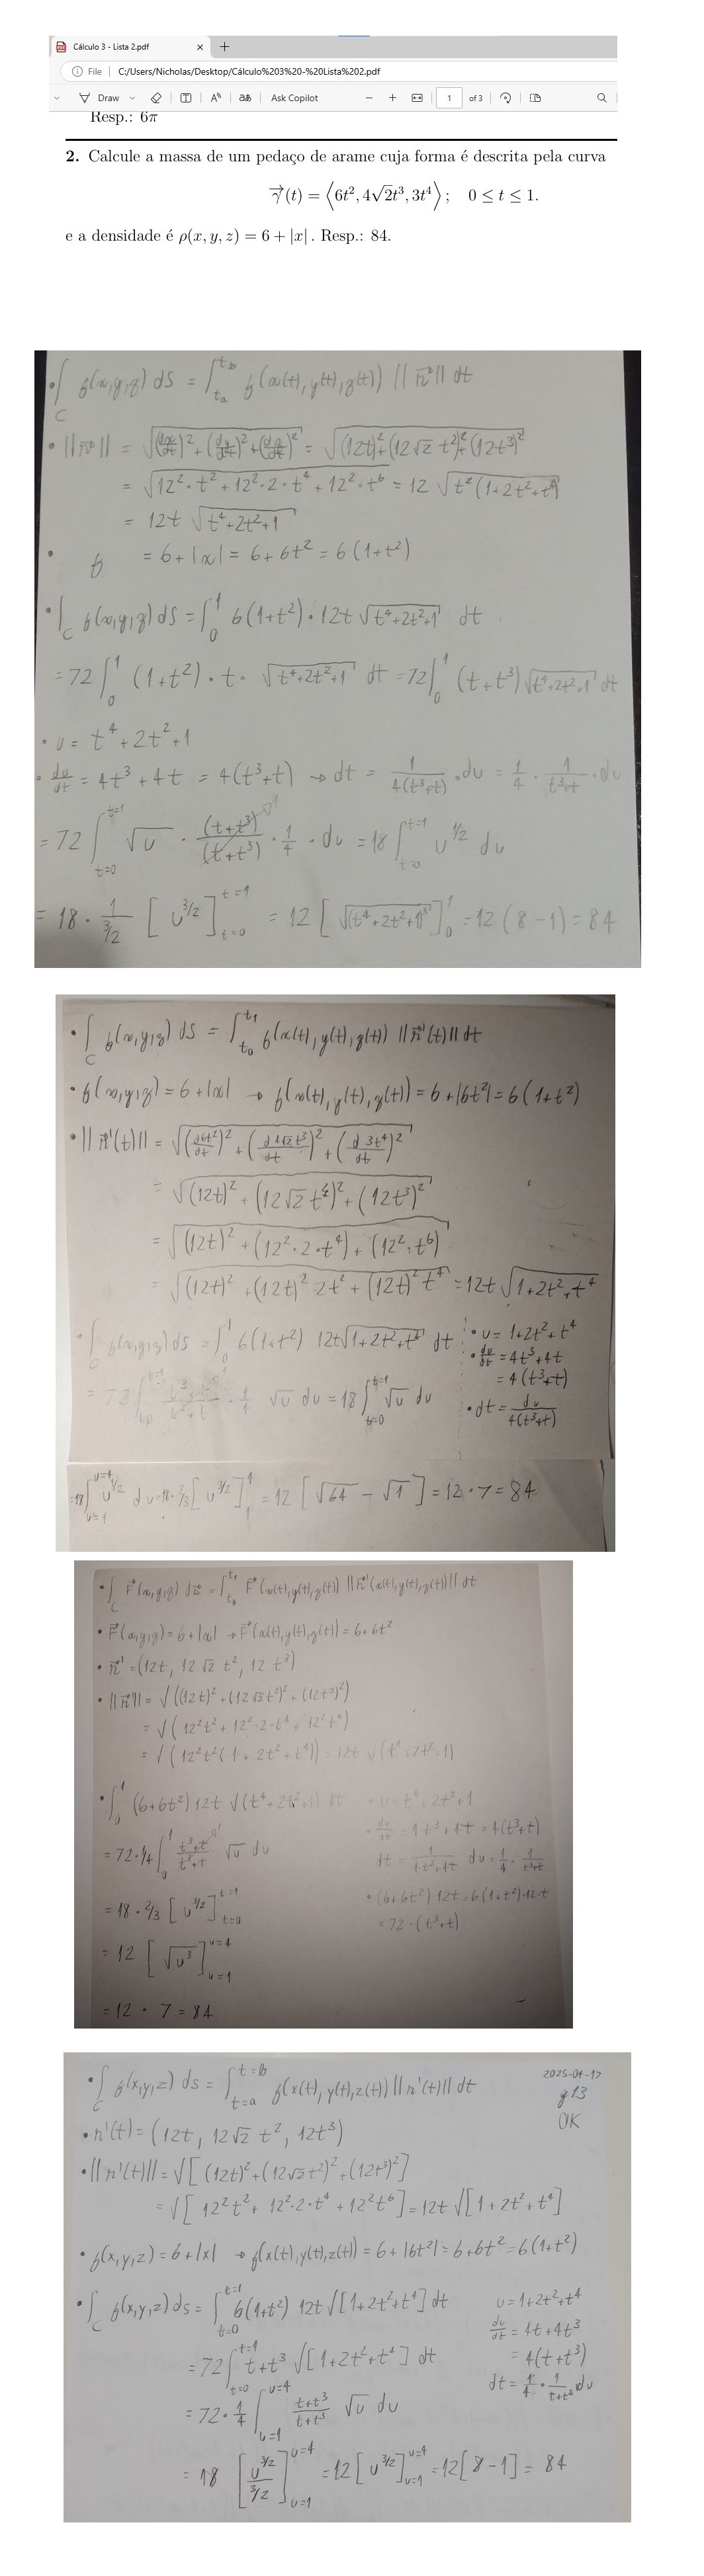 Cálculo 3 - Lista 2.pdf × +
File | C:/Users/Nicholas/Desktop/Cálculo%203%20-%20Lista%202.pdf
Draw Ask Copilot − + 1 of 3
Resp.: 6π
2. Calcule a massa de um pedaço de arame cuja forma é descrita pela curva
γ⃗(t) = ⟨6t², 4√2t³, 3t⁴⟩; 0 ≤ t ≤ 1.
e a densidade é ρ(x, y, z) = 6 + |x|. Resp.: 84.
• ∫_C f(x,y,z) ds = ∫_{ta}^{tb} f(x(t),y(t),z(t)) ||r⃗'|| dt
• ||r⃗'|| = √((dx/dt)² + (dy/dt)² + (dz/dt)²) = √((12t)² + (12√2 t²)² + (12t³)²)
= √(12²·t² + 12²·2·t⁴ + 12²·t⁶) = 12 √(t²(1+2t²+t⁴))
= 12t √(t⁴+2t²+1)
• f = 6+|x| = 6+6t² = 6(1+t²)
• ∫_C f(x,y,z) ds = ∫₀¹ 6(1+t²)·12t √(t⁴+2t²+1) dt
= 72 ∫₀¹ (1+t²)·t·√(t⁴+2t²+1) dt = 72 ∫₀¹ (t+t³) √(t⁴+2t²+1) dt
• u = t⁴+2t²+1
• du/dt = 4t³+4t = 4(t³+t) → dt = 1/(4(t³+t)) · du = 1/4 · 1/(t³+t) · du
= 72 ∫_{t=0}^{t=1} √u · (t+t³)/(t+t³) · 1/4 · du = 18 ∫_{t=0}^{t=1} u^{1/2} du
= 18 · 1/(3/2) [u^{3/2}]_{t=0}^{t=1} = 12 [√(t⁴+2t²+1)³]₀¹ = 12(8−1) = 84
• ∫_C f(x,y,z) ds = ∫_{t₀}^{t₁} f(x(t),y(t),z(t)) ||r⃗'(t)|| dt
• f(x,y,z) = 6+|x| → f(x(t),y(t),z(t)) = 6+|6t²| = 6(1+t²)
• ||r⃗'(t)|| = √((d6t²/dt)² + (d4√2t³/dt)² + (d3t⁴/dt)²)
= √((12t)² + (12√2 t²)² + (12t³)²)
= √((12t)² + (12²·2·t⁴) + (12²·t⁶))
= √((12t)² + (12t)² 2t² + (12t)² t⁴) = 12t √(1+2t²+t⁴)
• ∫_C f(x,y,z) ds = ∫₀¹ 6(1+t²) 12t √(1+2t²+t⁴) dt
= 72 ∫_{t=0}^{t=1} (t³+t)/(t³+t) · 1/4 √u du = 18 ∫_{t=0}^{t=1} √u du
• u = 1+2t²+t⁴
• du/dt = 4t³+4t
= 4(t³+t)
• dt = du/(4(t³+t))
= 18 ∫_{u=1}^{u=4} u^{1/2} du = 18·2/3 [u^{3/2}]₁⁴ = 12 [√64 − √1] = 12·7 = 84
• ∫_C F⃗(x,y,z) dr⃗ = ∫_{t₀}^{t₁} F⃗(x(t),y(t),z(t)) ||r⃗'(x(t),y(t),z(t))|| dt
• F⃗(x,y,z) = 6+|x| → F⃗(x(t),y(t),z(t)) = 6+6t²
• r⃗' = (12t, 12√2 t², 12t³)
• ||r⃗'|| = √((12t)² + (12√2t²)² + (12t³)²)
= √(12²t² + 12²·2·t⁴ + 12²t⁴)
= √(12²t²(1+2t²+t⁴)) = 12t √(t⁴+2t²+1)
• ∫₀¹ (6+6t²) 12t √(t⁴+2t²+1) dt
= 72·1/4 ∫₀¹ (t³+t)/(t³+t) √u du
= 18·2/3 [u^{3/2}]_{t=0}^{t=1}
= 12 [√u³]_{u=1}^{u=4}
= 12 · 7 = 84
• u = t⁴+2t²+1
• du/dt = 4t³+4t = 4(t³+t)
dt = 1/(4t³+4t) du = 1/4 · 1/(t³+t)
• (6+6t²) 12t = 6(1+t²)·12·t
= 72·(t³+t)
2025-04-17
g13
OK
• ∫_C f(x,y,z) ds = ∫_{t=a}^{t=b} f(x(t),y(t),z(t)) ||r'(t)|| dt
• r'(t) = (12t, 12√2 t², 12t³)
• ||r'(t)|| = √[(12t)² + (12√2t²)² + (12t³)²]
= √[12²t² + 12²·2·t⁴ + 12²t⁶] = 12t √[1+2t²+t⁴]
• f(x,y,z) = 6+|x| → f(x(t),y(t),z(t)) = 6+|6t²| = 6+6t² = 6(1+t²)
• ∫_C f(x,y,z) ds = ∫_{t=0}^{t=1} 6(1+t²) 12t √[1+2t²+t⁴] dt
= 72 ∫_{t=0}^{t=1} t+t³ √[1+2t²+t⁴] dt
= 72·1/4 ∫_{u=1}^{u=4} (t+t³)/(t+t³) √u du
= 18 [u^{3/2}/(3/2)]_{u=1}^{u=4} = 12 [u^{3/2}]_{u=1}^{u=4} = 12[8−1] = 84
u = 1+2t²+t⁴
du/dt = 4t+4t³
= 4(t+t³)
dt = 1/4 · 1/(t+t³) du